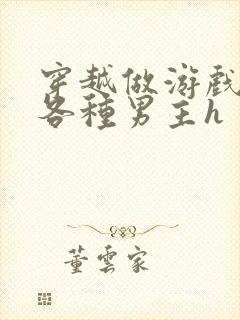 穿越做游戲
各種男主h
董雲家